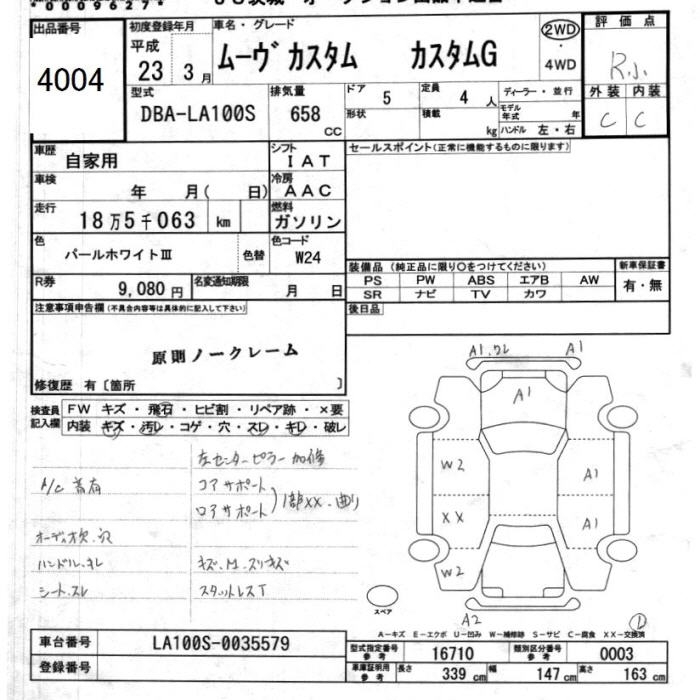 *00096827*
出品番号 初度登録年月 車名・グレード 評価点
4004 平成 23 3月 ムーヴ カスタム カスタムG 2WD・4WD R小
型式 排気量 ドア 5 定員 4人 ディーラー・並行 外装 内装
DBA-LA100S 658 CC 形状 積載 kg モデル年式 年 ハンドル 左・右 C C
車歴 自家用 シフト IAT セールスポイント(正常に機能するものに限ります)
車検 年 月( 日) 冷房 AAC
走行 18万5千063 km 燃料 ガソリン
色 パールホワイトⅢ 色替 色コード W24
装備品(純正品に限り○をつけてください) 新車保証書
R券 9,080円 名変通知期限 月 日 PS PW ABS エアB AW 有・無
SR ナビ TV カワ
注意事項申告欄(不具合内容等は具体的に記入して下さい) 後日品
原則ノークレーム
修復歴 有〔箇所 〕
検査員記入欄 FW キズ・飛石・ヒビ割・リペア跡・×要
内装 キズ・汚レ・コゲ・穴・スレ・キレ・破レ
A1.ワレ A1
A1
左センターピラー加修
W2 A1
A/C 音有 コアサポート
ロアサポート 1部XX.曲り
XX A1
オーディオ欠.穴
ハンドル.キレ キズ.M.スリキズ
W2
シート.スレ スタットレスT
スペア A2
A-キズ E-エクボ U-凹み W-補修跡 S-サビ C-腐食 XX-交換済
車台番号 LA100S-0035579 型式指定番号 参考 16710 類別区分番号 参考 0003
登録番号 車庫証明用 参考 長さ 339 cm 幅 147 cm 高さ 163 cm